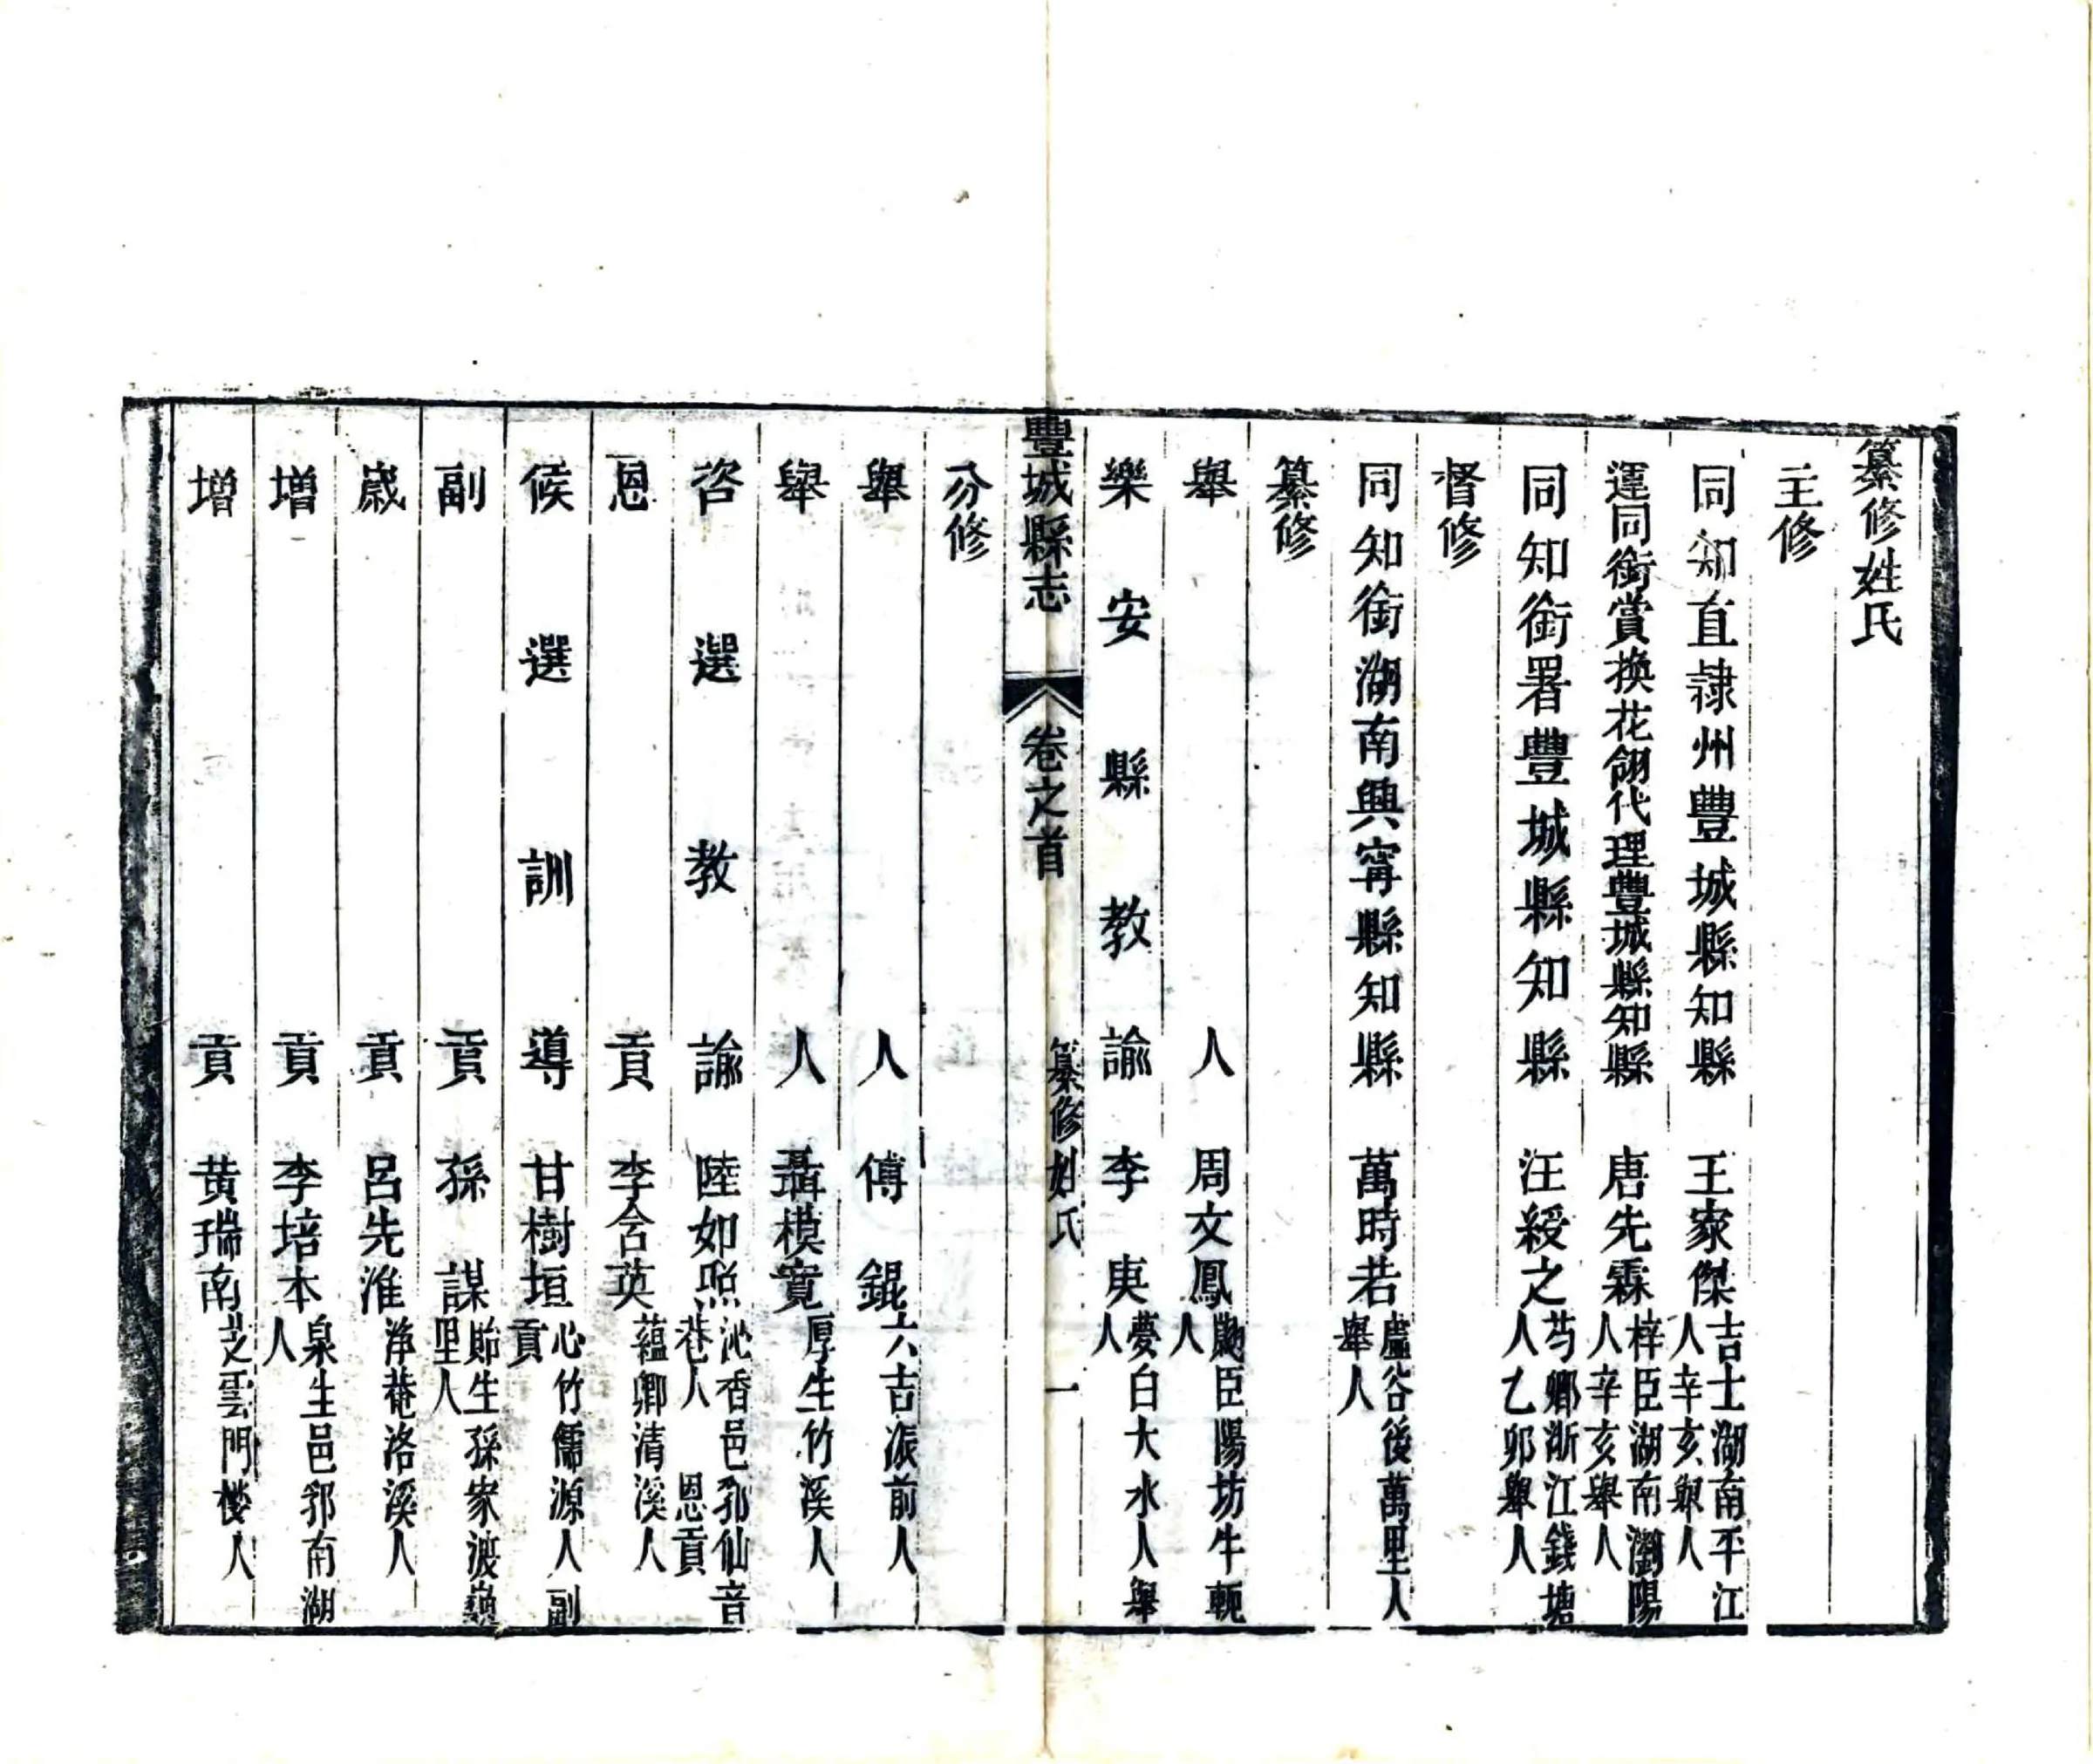 纂修姓氏
主修
同知直隸州豐城縣知縣 王家傑 吉士湖南平江人辛亥舉人
運同銜賞換花翎代理豐城縣知縣 唐先霖 梓臣湖南瀏陽人辛亥舉人
同知銜署豐城縣知縣 汪綬之 芍卿浙江錢塘人乙卯舉人
督修
同知銜湖南興寧縣知縣 萬時若 廬谷後萬里人舉人
纂修
舉人 周文鳳 勷臣陽坊牛軛人
樂安縣教諭 李庚 夢白大水人舉人
豐城縣志 卷之首 纂修姓氏 一
分修
舉人 傅錕 六吉派前人
舉人 聶模寬 厚生竹溪人
咨選教諭 陸如照 沁香邑郛仙音巷人 恩貢
恩貢 李含英 蘊卿清溪人
候選訓導 甘樹垣 心竹儒源人副貢
副貢 孫謀 貽生孫家渡巋里人
歲貢 呂先淮 淨菴洛溪人
增貢 李培本 泉生邑郛南湖人
增貢 黃瑞南 芝雲門樓人